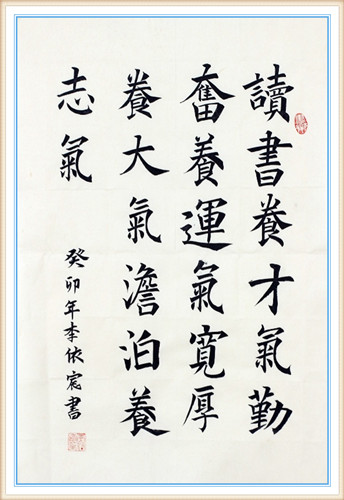 讀書養才氣勤
奮養運氣寬厚
養大氣澹泊養
志氣
癸卯年李依宸書